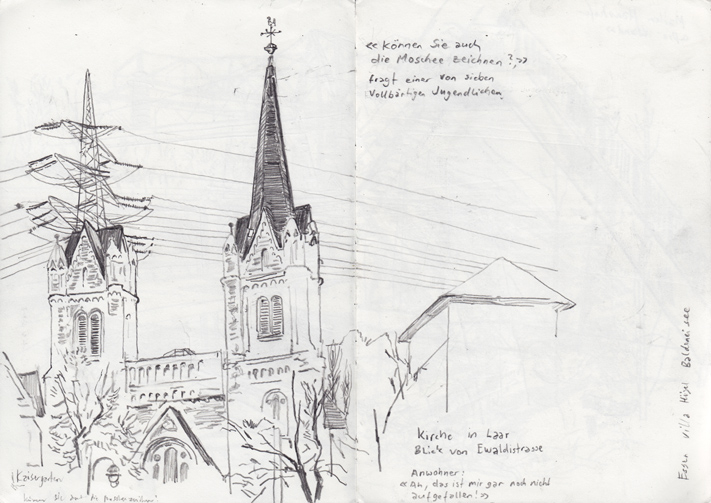 «Können Sie auch
die Moschee zeichnen?»,
fragt einer von sieben
vollbärtigen Jugendlichen.
Kirche in Laar
Blick von Ewaldistrasse
Anwohner:
«Ah, das ist mir gar noch nicht
aufgefallen!»
Kaisergarten
Essen Villa Hügel Baldeneisee